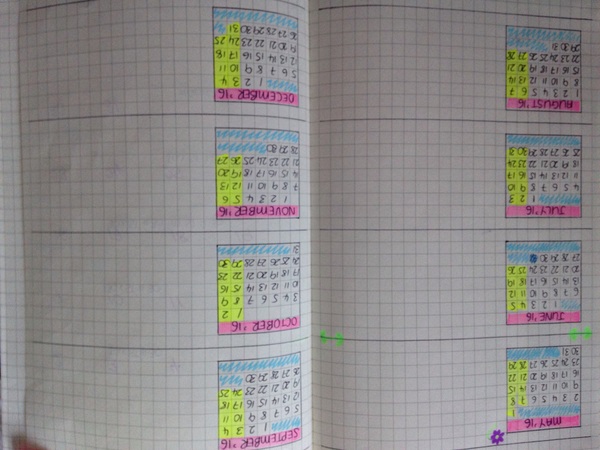 MAY '16
1
2 3 4 5 6 7 8
9 10 11 12 13 14 15
16 17 18 19 20 21 22
23 24 25 26 27 28 29
30 31
JUNE '16
1 2 3 4 5
6 7 8 9 10 11 12
13 14 15 16 17 18 19
20 21 22 23 24 25 26
27 28 29 30
JULY '16
1 2 3
4 5 6 7 8 9 10
11 12 13 14 15 16 17
18 19 20 21 22 23 24
25 26 27 28 29 30 31
AUGUST '16
1 2 3 4 5 6 7
8 9 10 11 12 13 14
15 16 17 18 19 20 21
22 23 24 25 26 27 28
29 30 31
SEPTEMBER '16
1 2 3 4
5 6 7 8 9 10 11
12 13 14 15 16 17 18
19 20 21 22 23 24 25
26 27 28 29 30
OCTOBER '16
1 2
3 4 5 6 7 8 9
10 11 12 13 14 15 16
17 18 19 20 21 22 23
24 25 26 27 28 29 30
31
NOVEMBER '16
1 2 3 4 5 6
7 8 9 10 11 12 13
14 15 16 17 18 19 20
21 22 23 24 25 26 27
28 29 30
DECEMBER '16
1 2 3 4
5 6 7 8 9 10 11
12 13 14 15 16 17 18
19 20 21 22 23 24 25
26 27 28 29 30 31